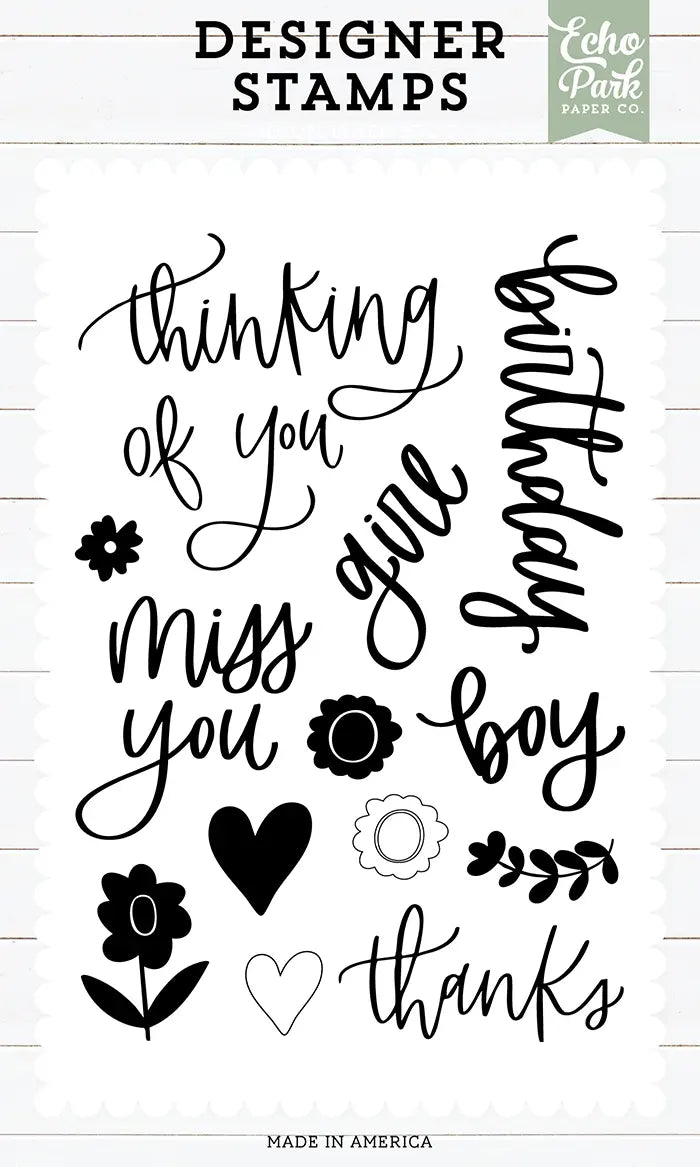 DESIGNER
STAMPS
Echo
Park
PAPER CO.
thinking
of you
birthday
girl
miss
you
boy
thanks
MADE IN AMERICA